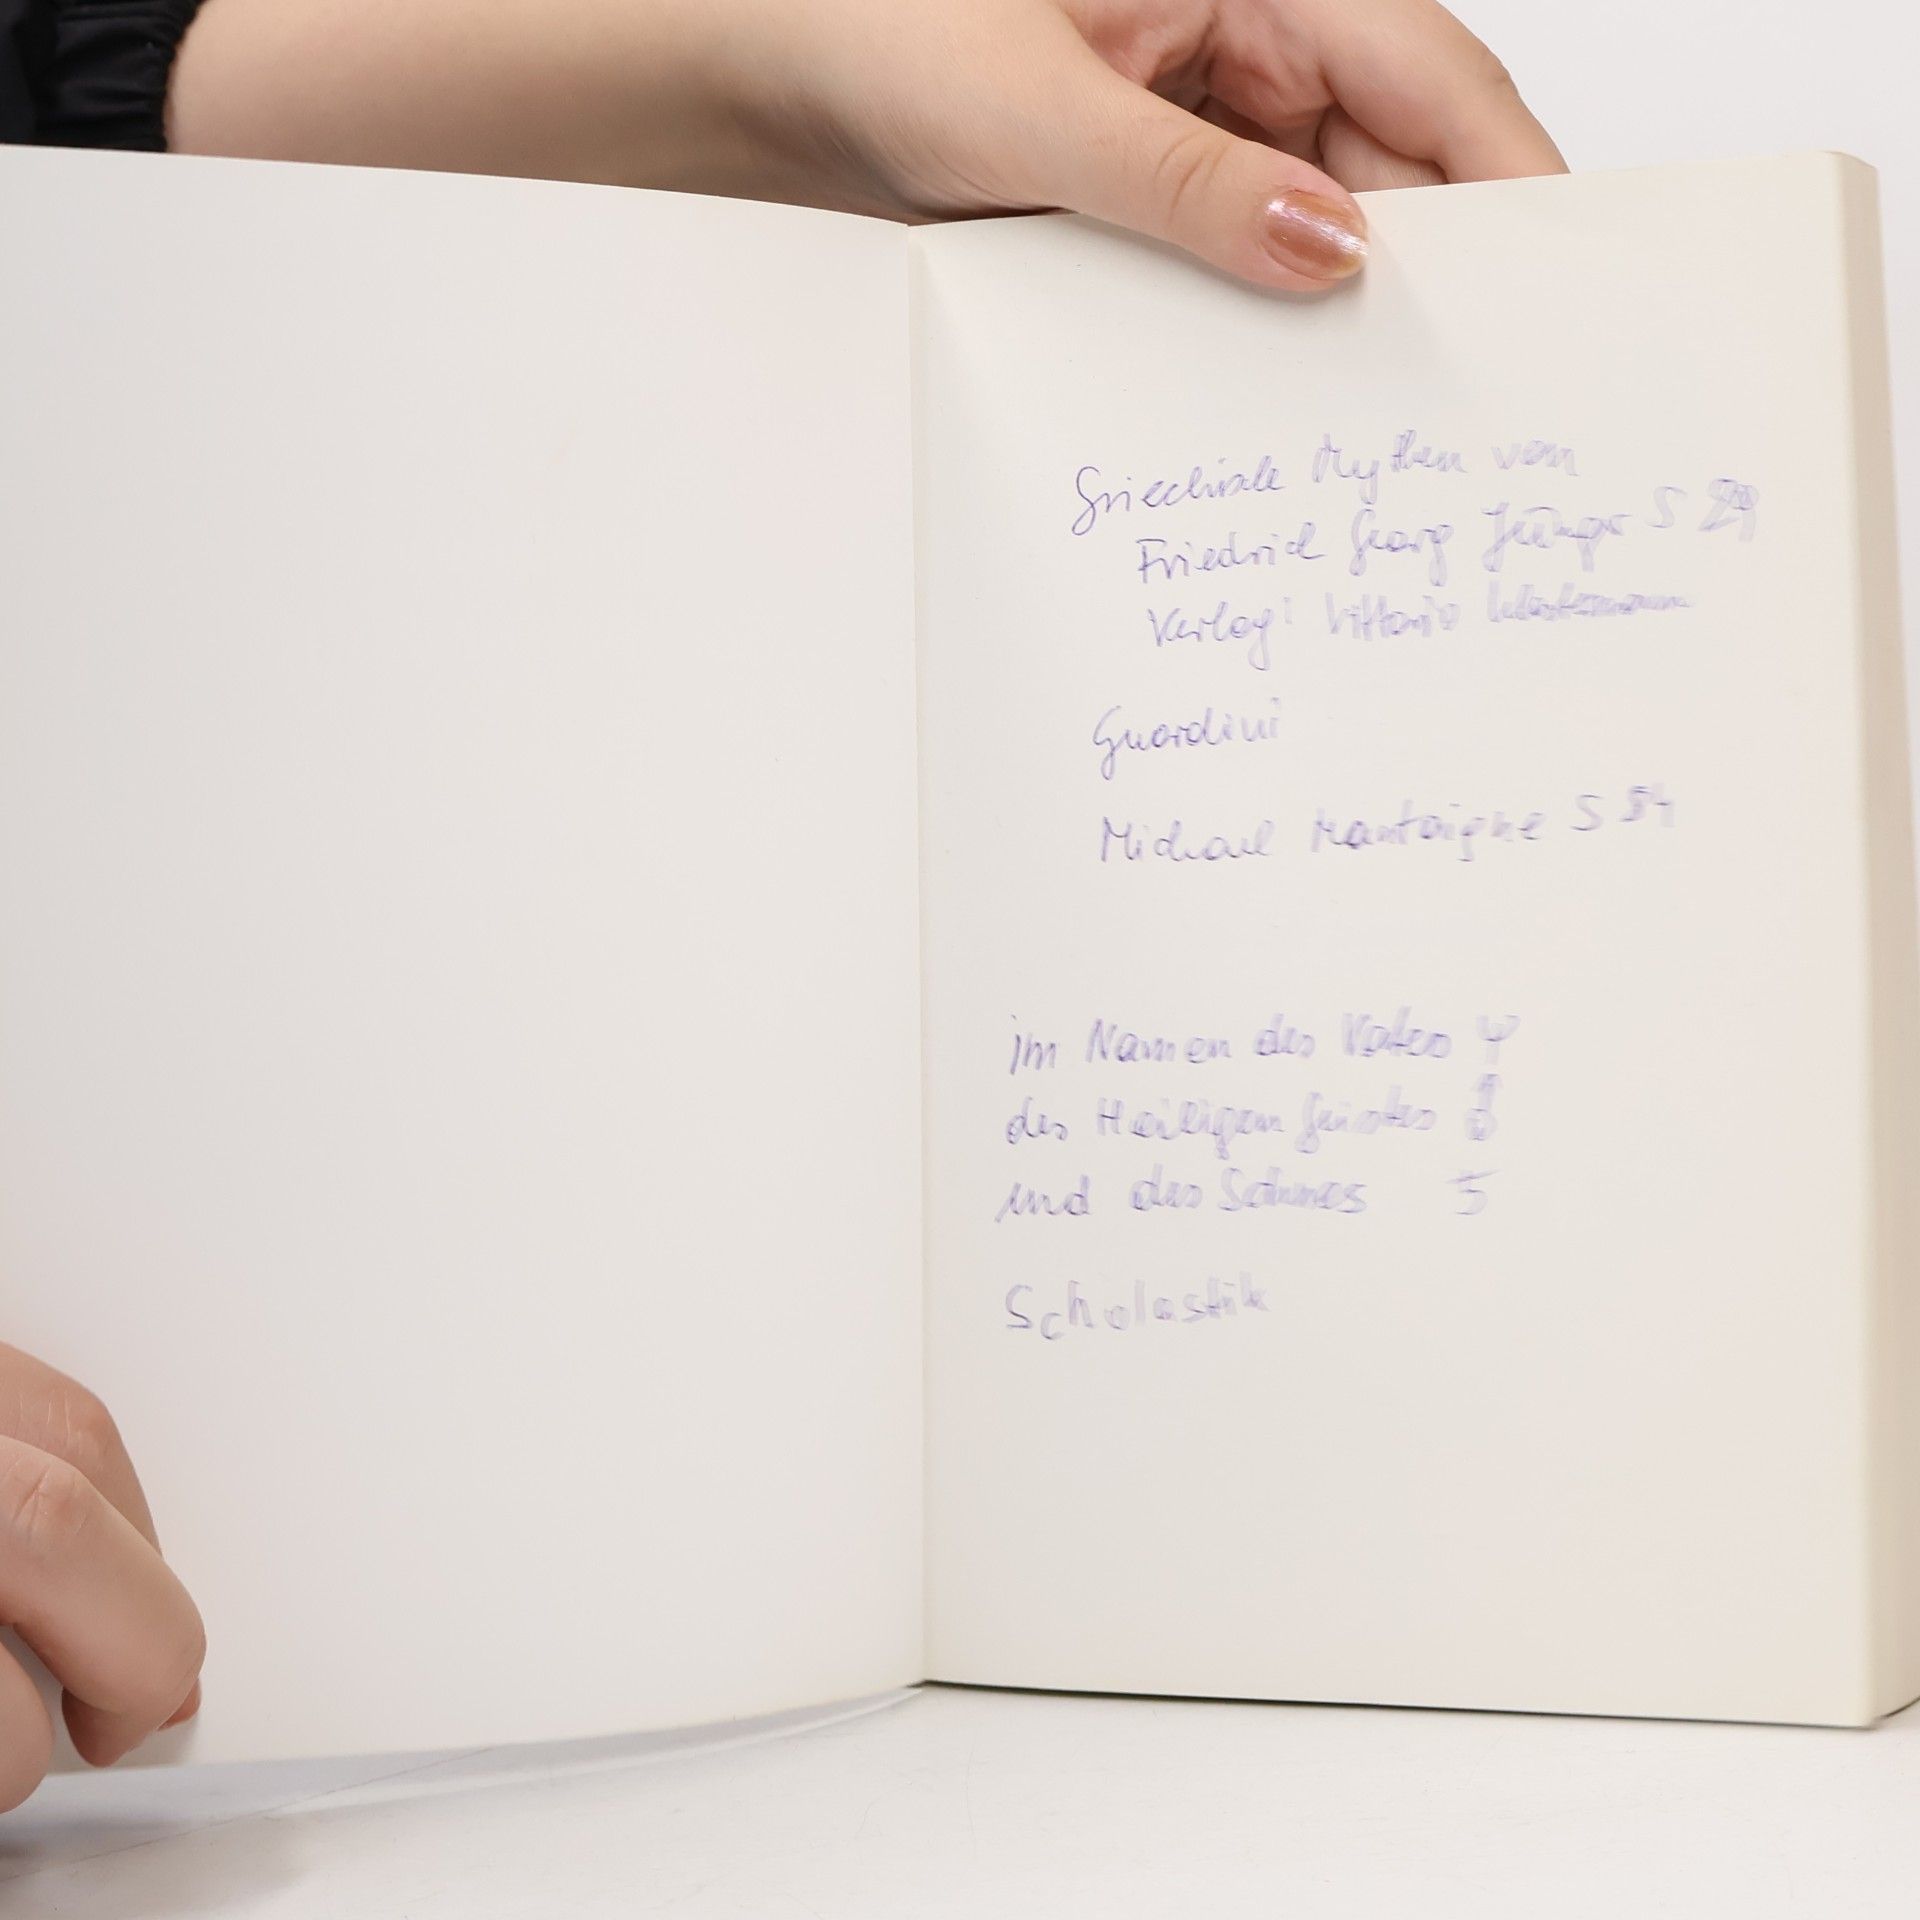 Griechische Mythen von
Friedrich Georg Jünger S 29
Verlag: Vittorio Klostermann
Guardini
Michael Montaigne S
im Namen des Vaters
des Heiligen Geistes
und des Sohnes
Scholastik